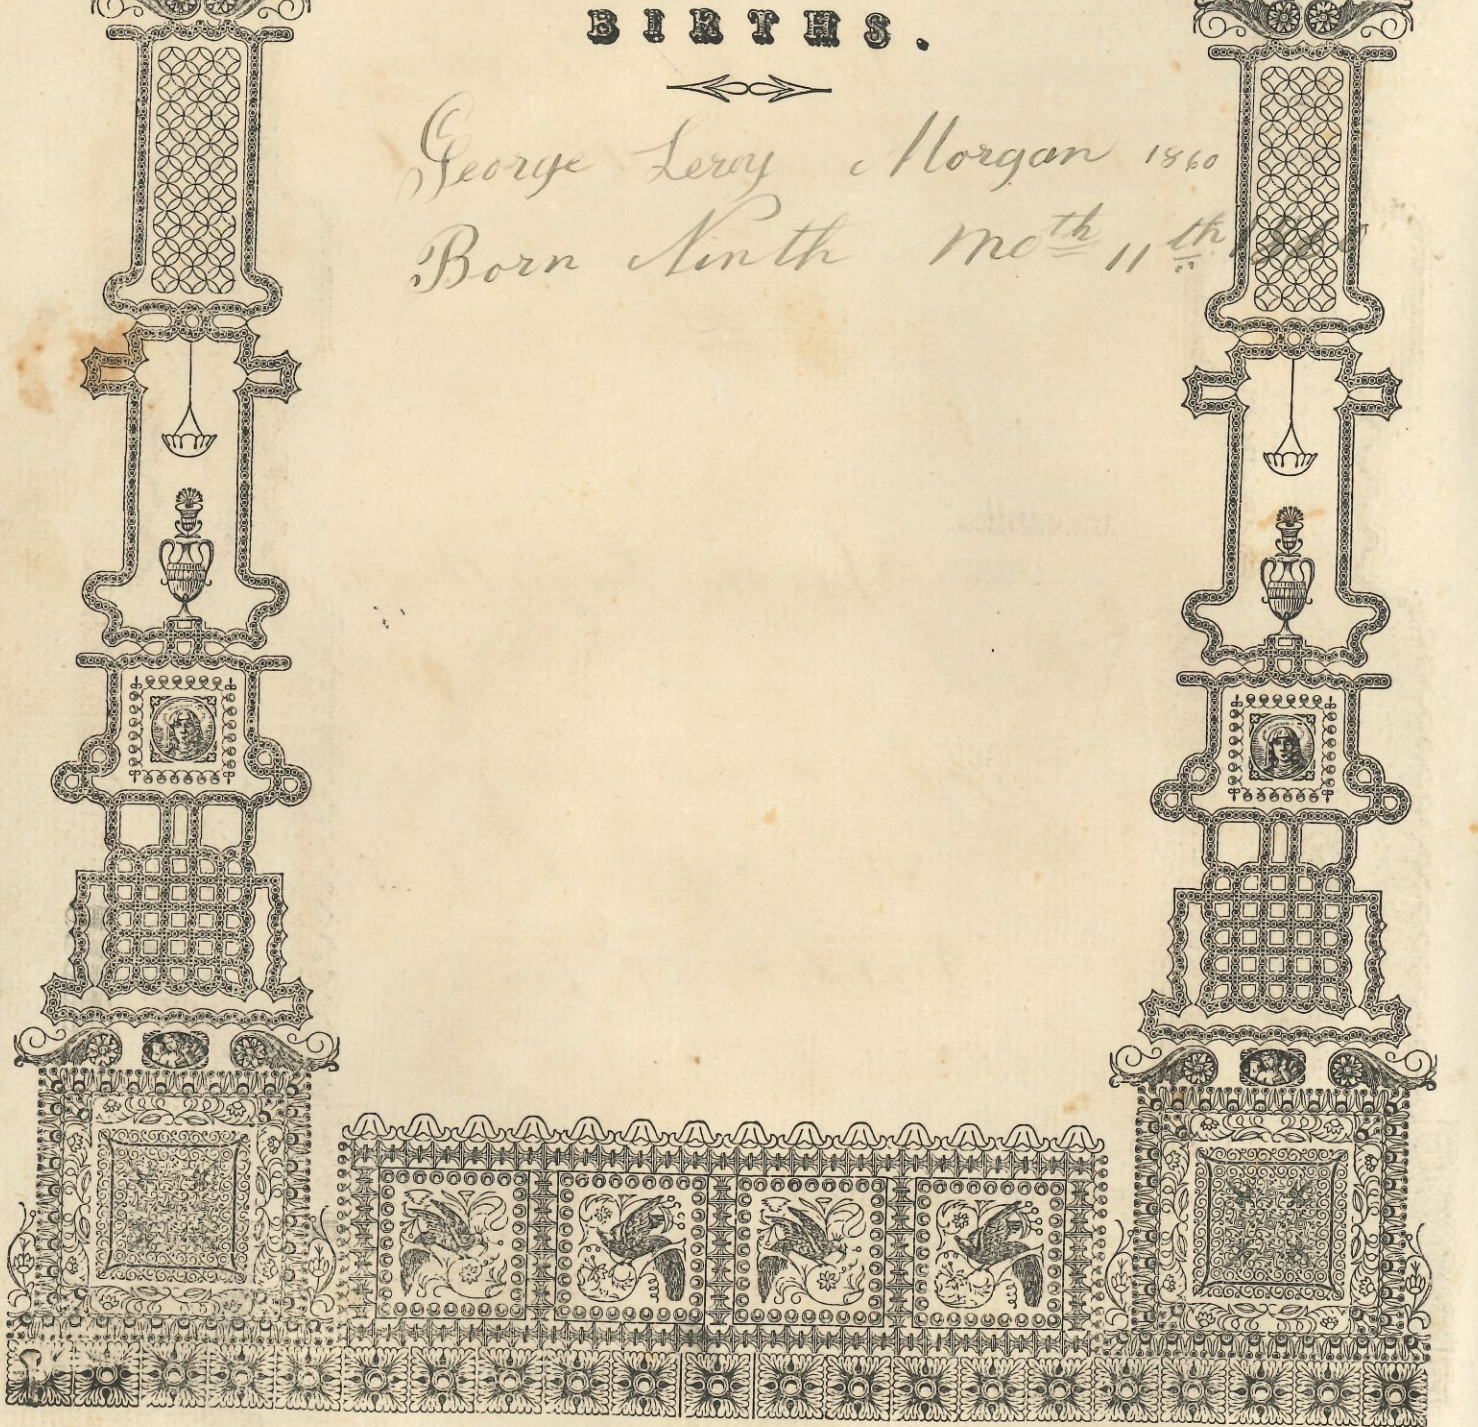 BIRTHS.
George Leroy Morgan 1860
Born Ninth Moth 11th 1860